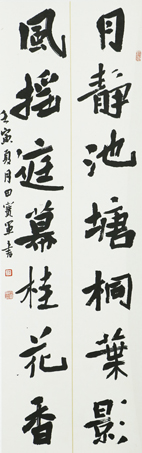 月靜池塘桐葉影
風摇庭幕桂花香
壬寅夏月田寶軍書